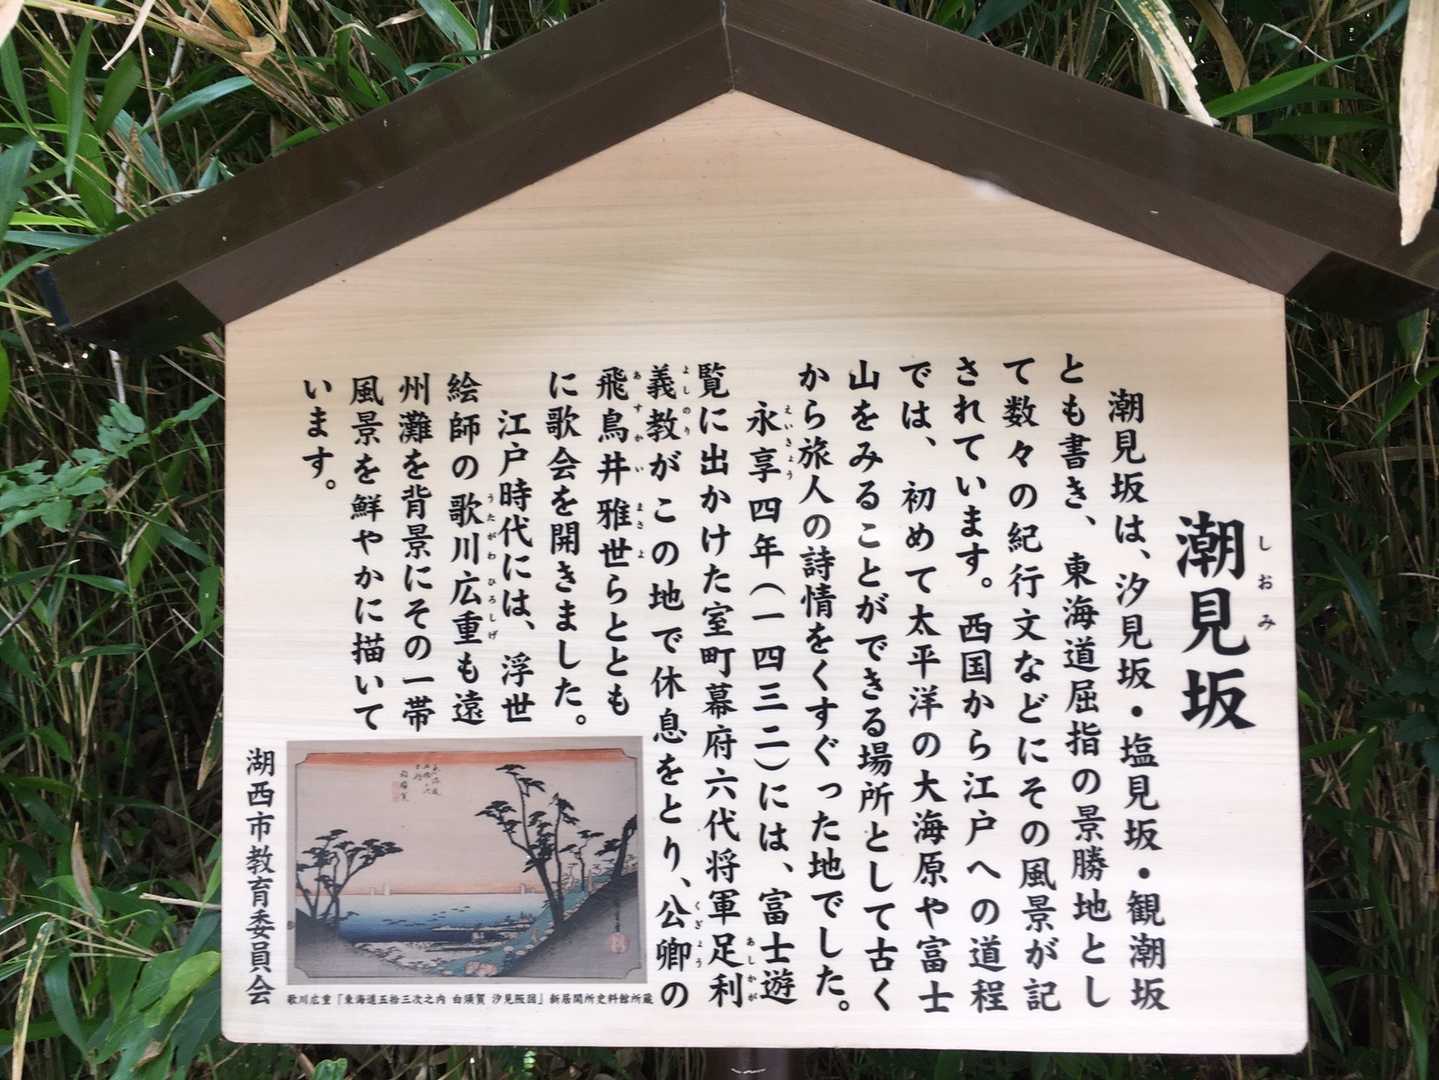 潮見坂
しおみ
潮見坂は、汐見坂・塩見坂・観潮坂
とも書き、東海道屈指の景勝地とし
て数々の紀行文などにその風景が記
されています。西国から江戸への道程
では、初めて太平洋の大海原や富士
山をみることができる場所として古く
から旅人の詩情をくすぐった地でした。
永享四年(一四三二)には、富士遊
えいきょう
覧に出かけた室町幕府六代将軍足利
あしかが
義教がこの地で休息をとり、公卿の
よしのり
くぎょう
飛鳥井雅世らととも
あすかい まさよ
に歌会を開きました。
江戸時代には、浮世
絵師の歌川広重も遠
うたがわ ひろしげ
州灘を背景にその一帯
風景を鮮やかに描いて
います。
歌川広重「東海道五拾三次之内 白須賀 汐見阪図」新居関所史料館所蔵
湖西市教育委員会